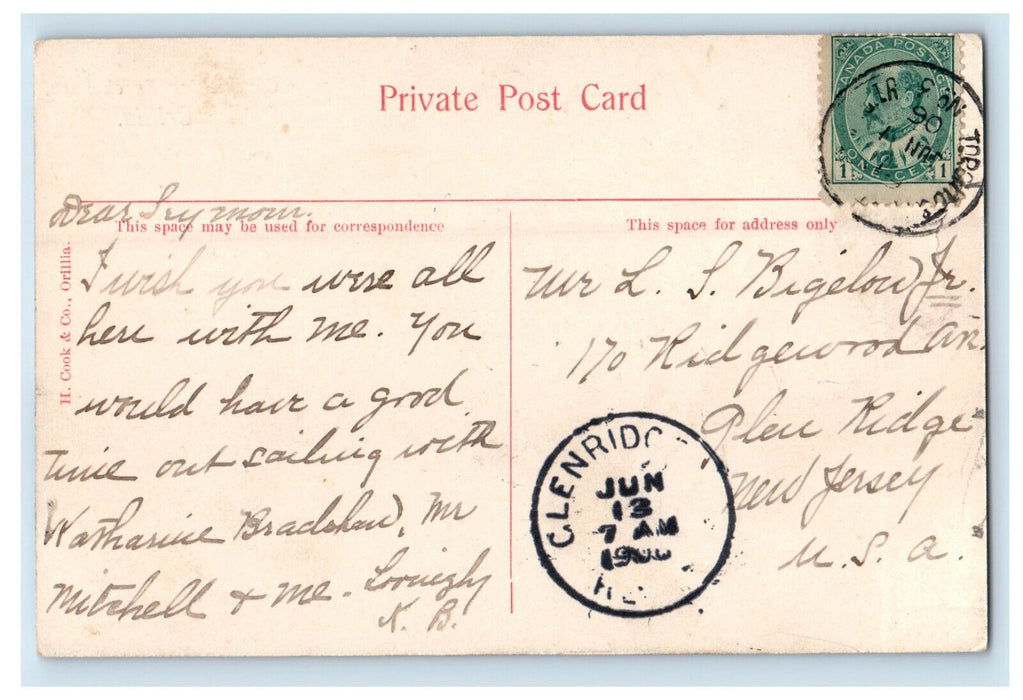 Private Post Card
CANADA POSTAGE
ONE CENT
1 1
TORONTO
JUN
06
Dear Seymour.
This space may be used for correspondence
This space for address only
H. Cook & Co., Orillia.
I wish you were all
here with me. You
would have a good
time out sailing with
Katharine Bradshaw, Mr
Mitchell & me. Lovingly
K. B.
Mr L. S. Bigelow Jr.
170 Ridgewood Av.
Glen Ridge
New Jersey
U. S. A.
GLENRIDG
JUN
13
7 AM
1906